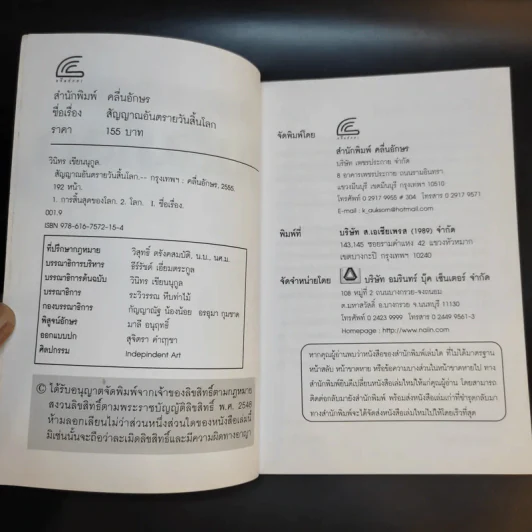 คลื่นอักษร
สำนักพิมพ์ คลื่นอักษร
ชื่อเรื่อง สัญญาณอันตรายวันสิ้นโลก
ราคา 155 บาท
วินิทร เขียนนุกูล.
สัญญาณอันตรายวันสิ้นโลก.-- กรุงเทพฯ : คลื่นอักษร, 2555.
192 หน้า.
1. การสิ้นสุดของโลก. 2. โลก. I. ชื่อเรื่อง.
001.9
ISBN 978-616-7572-15-4
ที่ปรึกษากฎหมาย วิสุทธิ์ ตรังคสมบัติ, น.บ., นศ.ม.
บรรณาธิการบริหาร ธีร์รัชต์ เอี่ยมตระกูล
บรรณาธิการต้นฉบับ วินิทร เขียนนุกูล
บรรณาธิการ ระวีวรรณ หีบท่าไม้
กองบรรณาธิการ กัญญาณัฐ น้องน้อย อรอุมา กุมชาด
พิสูจน์อักษร มาลี อนุฤทธิ์
ออกแบบปก สุจิตรา คำฤาชา
ศิลปกรรม Indepindent Art
© ได้รับอนุญาตจัดพิมพ์จากเจ้าของลิขสิทธิ์ตามกฎหมาย
สงวนลิขสิทธิ์ตามพระราชบัญญัติลิขสิทธิ์ พ.ศ. 2546
ห้ามลอกเลียนไม่ว่าส่วนหนึ่งส่วนใดของหนังสือเล่มนี้
มิเช่นนั้นจะถือว่าละเมิดลิขสิทธิ์และมีความผิดทางอาญา
จัดพิมพ์โดย
คลื่นอักษร
สำนักพิมพ์ คลื่นอักษร
บริษัท เพชรประกาย จำกัด
8 อาคารเพชรประกาย ถนนรามอินทรา
แขวงมีนบุรี เขตมีนบุรี กรุงเทพฯ 10510
โทรศัพท์ 0 2917 9955 # 304 โทรสาร 0 2917 9571
E-mail : k_auksorn@hotmail.com
พิมพ์ที่ บริษัท ส.เอเซียเพรส (1989) จำกัด
143,145 ซอยรามคำแหง 42 แขวงหัวหมาก
เขตบางกะปิ กรุงเทพฯ 10240
จัดจำหน่ายโดย บริษัท อมรินทร์ บุ๊ค เซ็นเตอร์ จำกัด
108 หมู่ที่ 2 ถนนบางกรวย-จงถนอม
ต.มหาสวัสดิ์ อ.บางกรวย จ.นนทบุรี 11130
โทรศัพท์ 0 2423 9999 โทรสาร 0 2449 9561-3
Homepage : http://www.naiin.com
หากคุณผู้อ่านพบว่าหนังสือของสำนักพิมพ์เล่มใด ที่ไม่ได้มาตรฐาน
หน้าสลับ หน้าขาดหาย หรือข้อความบางส่วนในหน้าขาดหายไป ทาง
สำนักพิมพ์ยินดีเปลี่ยนหนังสือเล่มใหม่ให้แก่คุณผู้อ่าน โดยสามารถ
ติดต่อกลับมายังสำนักพิมพ์ พร้อมส่งหนังสือเล่มเก่าที่ชำรุดกลับมา
ทางสำนักพิมพ์จะได้จัดส่งหนังสือเล่มใหม่ไปให้โดยเร็วที่สุด